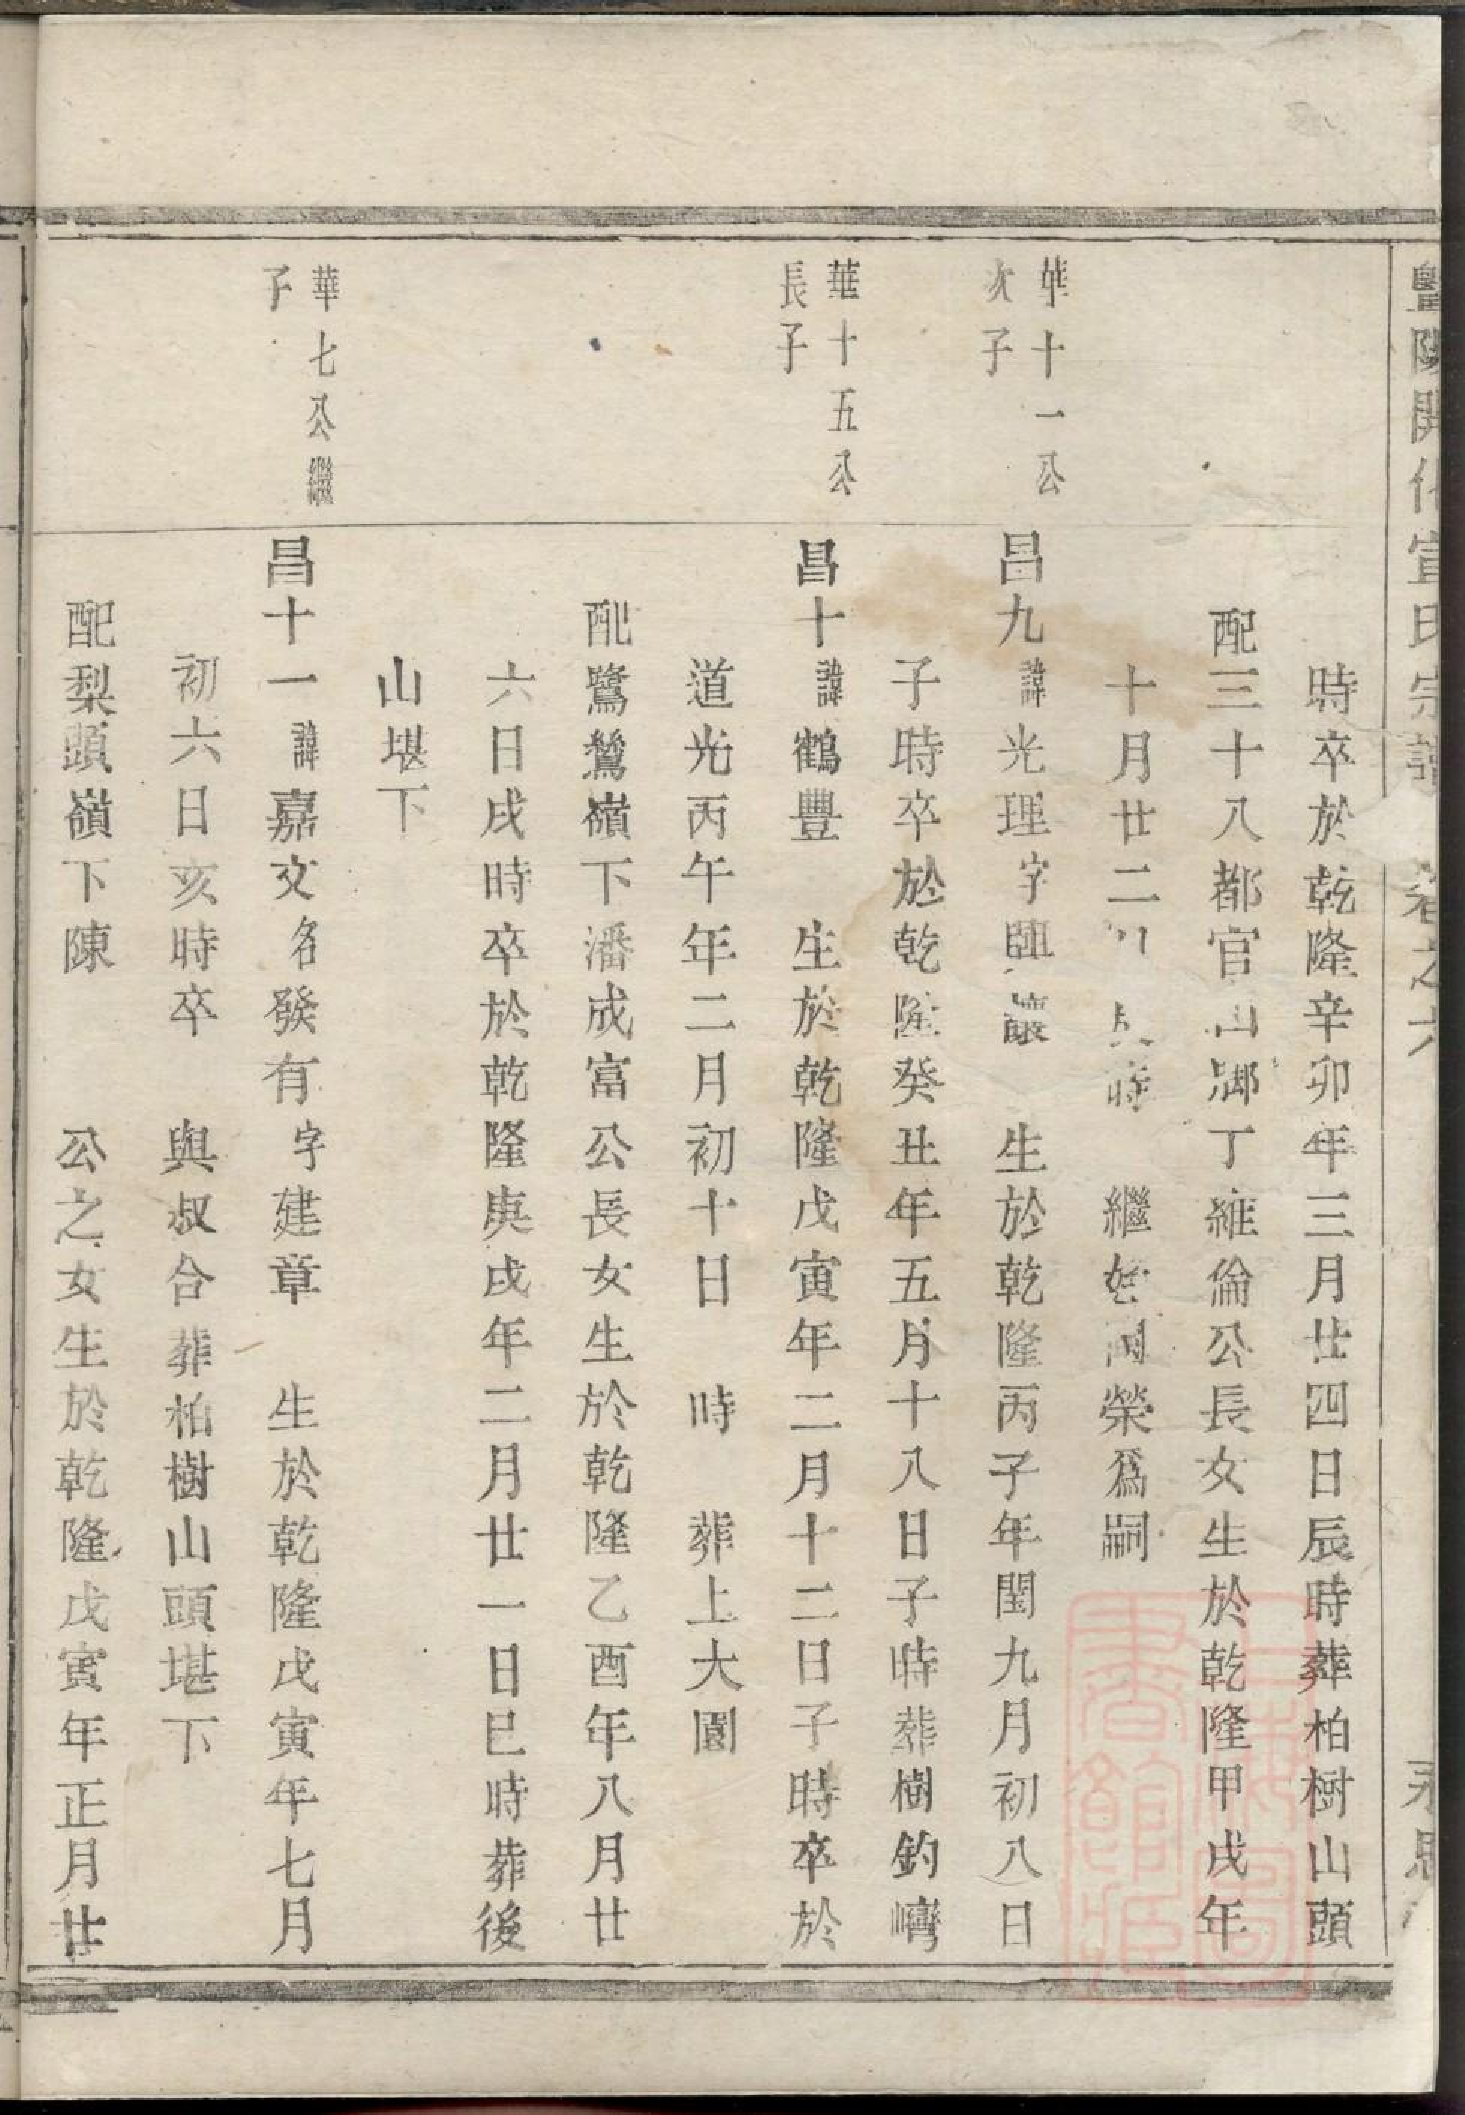 豐陽開化宣氏宗譜 卷之六
時卒於乾隆辛卯年三月廿四日辰時葬柏樹山頭
配三十八都官山鄉丁維倫公長女生於乾隆甲戌年
十月廿二 時 繼姪 榮爲嗣
華十一公
次子
昌九諱光理字 生於乾隆丙子年閏九月初八日
子時卒於乾隆癸丑年五月十八日子時葬樹釣巒
華十五公
長子
昌十諱鶴豐 生於乾隆戊寅年二月十二日子時卒於
道光丙午年二月初十日 時 葬上大園
配鷺鶿嶺下潘成富公長女生於乾隆乙酉年八月廿
六日戌時卒於乾隆庚戌年二月廿一日巳時葬後
山堪下
華七公繼
子
昌十一諱嘉文名發有字建章 生於乾隆戊寅年七月
初六日亥時卒 與叔合葬柏樹山頭堪下
配梨頭嶺下陳 公之女生於乾隆戊寅年正月廿